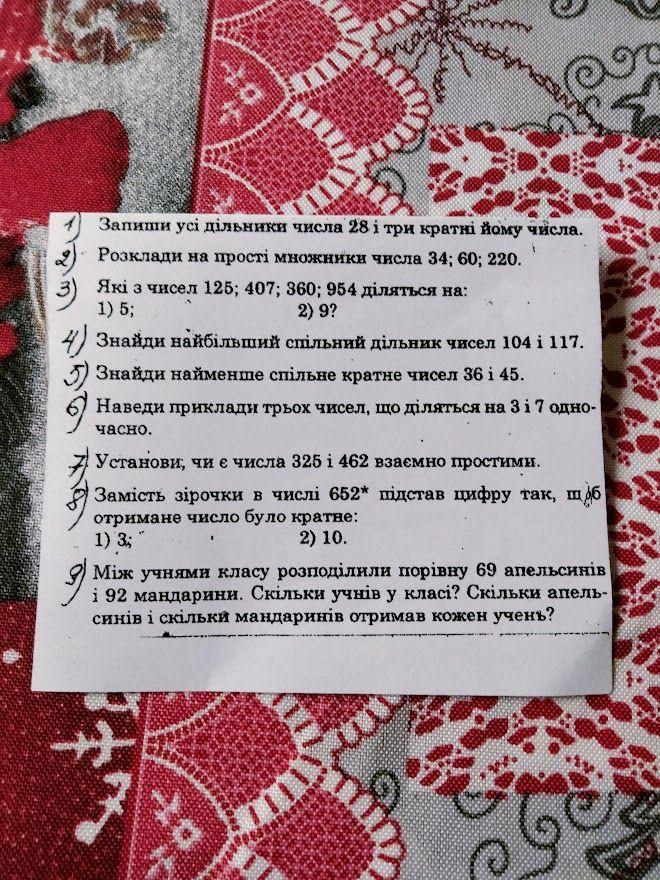 1) Запиши усі дільники числа 28 і три кратні йому числа.
2) Розклади на прості множники числа 34; 60; 220.
3) Які з чисел 125; 407; 360; 954 діляться на:
1) 5; 2) 9?
4) Знайди найбільший спільний дільник чисел 104 і 117.
5) Знайди найменше спільне кратне чисел 36 і 45.
6) Наведи приклади трьох чисел, що діляться на 3 і 7 одно-
часно.
7) Установи, чи є числа 325 і 462 взаємно простими.
8) Замість зірочки в числі 652* підстав цифру так, щоб
отримане число було кратне:
1) 3; 2) 10.
9) Між учнями класу розподілили порівну 69 апельсинів
і 92 мандарини. Скільки учнів у класі? Скільки апель-
синів і скільки мандаринів отримав кожен учень?